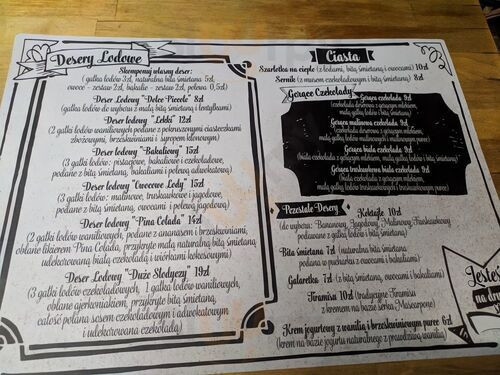 Desery Lodowe
Skomponuj własny deser:
( gałka lodów 3zł, naturalna bita śmietana 5zł,
owoce - zestaw 2zł, bakalie - zestaw 2zł, polewa 0,5zł)
Deser Lodowy "Dolce Piccole" 8zł
(gałka lodów do wyboru z małą bitą śmietaną i lentylkami)
Deser lodowy "Lekki" 12zł
(2 gałki lodów waniliowych podane z pokruszonymi ciasteczkami
zbożowymi, brzeskwiniami i syropem klonowym)
Deser lodowy "Bakaliowy" 15zł
(3 gałki lodów: pistacjowe, bakaliowe i czekoladowe,
podane z bitą śmietaną, bakaliami i polewą adwokatową)
Deser lodowy "Owocowe Lody" 15zł
(3 gałki lodów: malinowe, truskawkowe i jagodowe,
podane z bitą śmietaną, owocami i polewą jagodową)
Deser lodowy "Pina Colada" 14zł
(2 gałki lodów waniliowych, podane z ananasem i brzeskwiniami,
oblane likierem Pina Colada, przykryte małą naturalną bitą śmietaną,
udekorowaną białą czekoladą i wiórkami kokosowymi)
Deser Lodowy "Dużo Słodyczy" 19zł
(3 gałki lodów czekoladowych, 1 gałka lodów waniliowych,
oblane ajerkoniakiem, przykryte bitą śmietaną,
całość polana sosem czekoladowym i adwokatowym
i udekorowana czekoladą)
Ciasta
Szarlotka na ciepło (z lodami, bitą śmietaną i owocami) 10zł
Sernik (z musem czekoladowym i bitą śmietaną) 8zł
Gorące Czekolady
Gorąca czekolada 9zł
(czekolada deserowa z gorącym mlekiem,
małą gałką lodów i bitą śmietaną)
Gorąca malinowa czekolada 9zł
(czekolada deserowa z gorącym mlekiem,
małą gałką lodów i bitą śmietaną)
Gorąca biała czekolada 9zł
(biała czekolada z gorącym mlekiem,
małą gałką lodów i bitą śmietaną)
Gorąca truskawkowa biała czekolada 9zł
(biała czekolada z gorącym mlekiem,
małą gałką lodów i truskawkowym puree)
Pozostałe Desery
Koktajle 10zł
(do wyboru: Bananowy, Jagodowy, Malinowy, Truskawkowy
podawane z gałką lodów i bitą śmietaną)
Bita śmietana 7zł (naturalna bita śmietana
podana w pucharku z owocami i bakaliami)
Galaretka 7zł (z bitą śmietaną, owocami i bakaliami)
Tiramisu 10zł (tradycyjne Tiramisu
z kremem na bazie serka Mascarpone)
Krem jogurtowy z wanilią i brzeskwiniowym puree 6zł
(krem na bazie jogurtu naturalnego z prawdziwą wanilią)